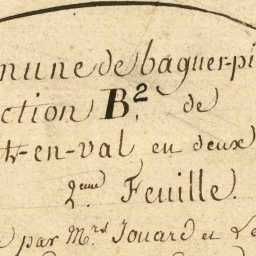 mune de baguer-pi
ction B.² de
t-en-val en deux
2.eme Feuille.
par M.rs Jouard et Le